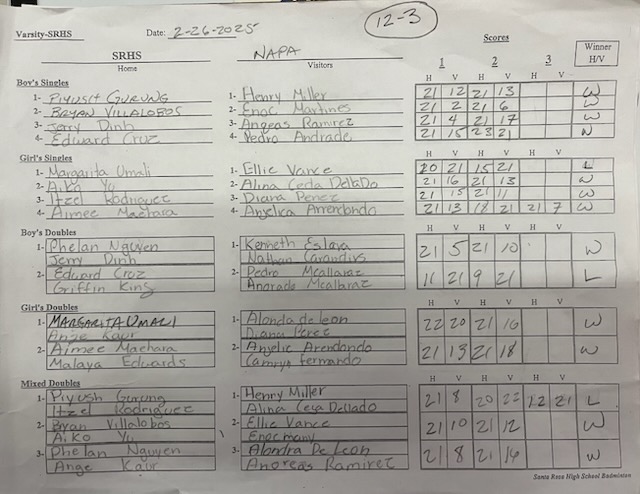 Varsity-SRHS Date: 2-26-2025 12-3
SRHS NAPA Scores Winner
Home Visitors 1 2 3 H/V
Boy's Singles H V H V H V
1- Piyush Gurung 1- Henry Miller 21 12 21 13 W
2- Bryan Villalobos 2- Enoc Martines 21 2 21 6 W
3- Jerry Dinh 3- Angeas Ramirez 21 4 21 17 W
4- Edward Cruz 4- Pedro Andrade 21 15 23 21 W
Girl's Singles H V H V H V
1- Margarita Umali 1- Ellie Vance 20 21 15 21 L
2- Aiko Yu 2- Alina Ceda Dellado 21 16 21 13 W
3- Itzel Rodriguez 3- Diana Perez 21 15 21 11 W
4- Aimee Maehara 4- Angelica Arrendondo 21 13 18 21 21 7 W
Boy's Doubles H V H V H V
1- Phelan Nguyen 1- Kenneth Eslava 21 5 21 10 W
Jerry Dinh Nathan
2- Edward Cruz 2- Pedro Mcallaraz 11 21 9 21 L
Griffin King Andrade Mcallaraz
Girl's Doubles H V H V H V
1- Margarita Umali 1- Alonda de leon 22 20 21 16 W
Ange Kaur Diana Perez
2- Aimee Maehara 2- Angelic Arendondo 21 13 21 18 W
Malaya Edwards Camryn fernando
Mixed Doubles H V H V H V
1- Piyush Gurung 1- Henry Miller 21 8 20 22 12 21 L
Itzel Rodriguez Alina Ceya Dellado
2- Bryan Villalobos 2- Ellie Vance 21 10 21 12 W
Aiko Yu Enoc
3- Phelan Nguyen 3- Alondra De Leon 21 8 21 16 W
Ange Kaur Andreas Ramirez
Santa Rosa High School Badminton